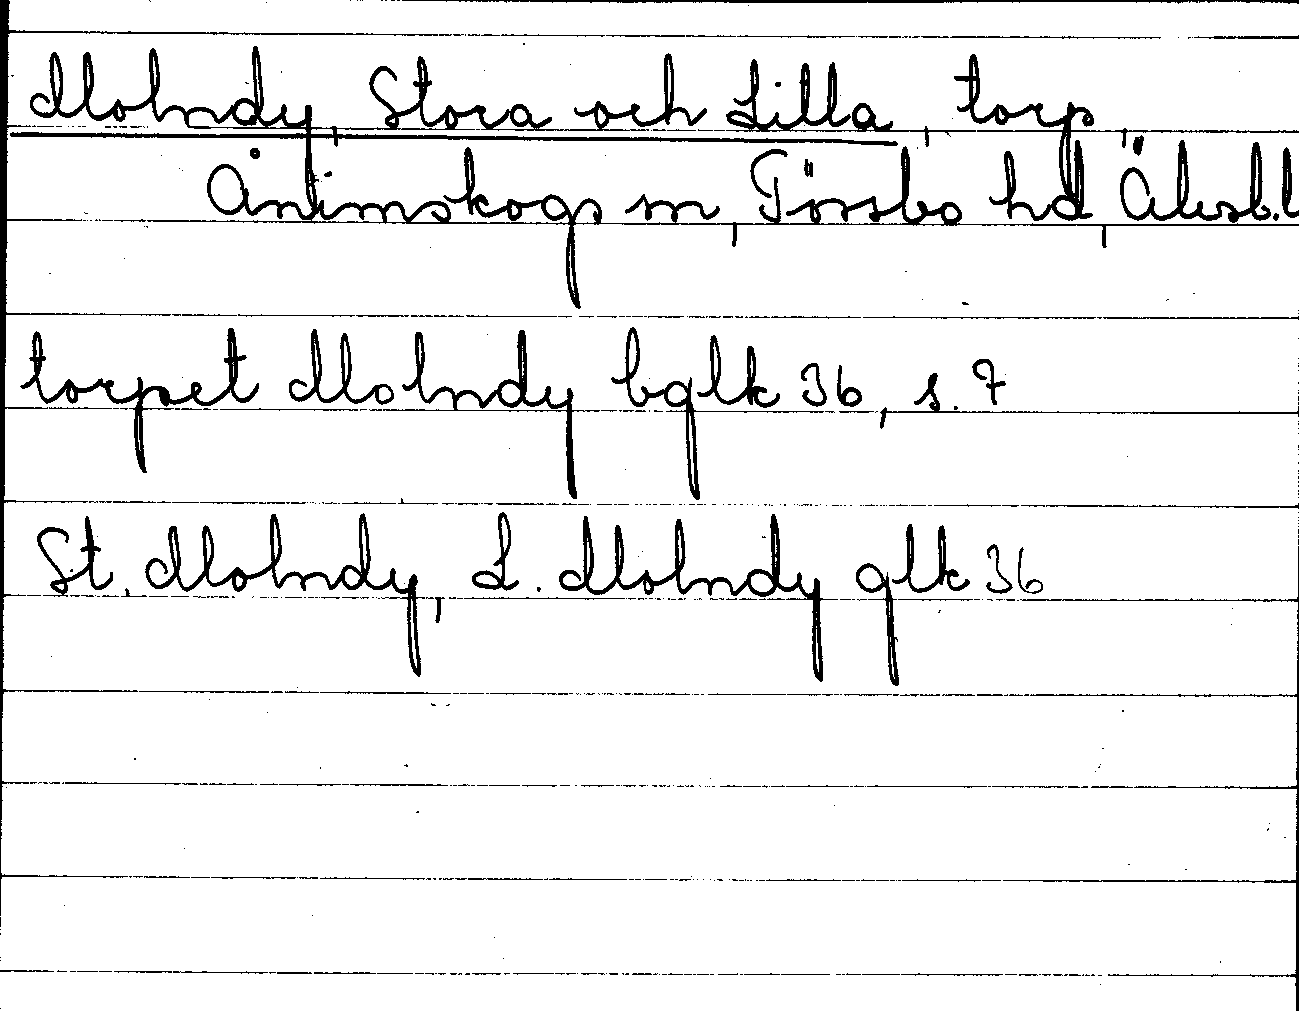 Mohndy, Stora och Lilla, torp,
Ånimskogs sn, Tössbo hd, Älvsb.l
torpet Mohndy bglk 36, s. 7
St. Mohndy, L. Mohndy glk 36